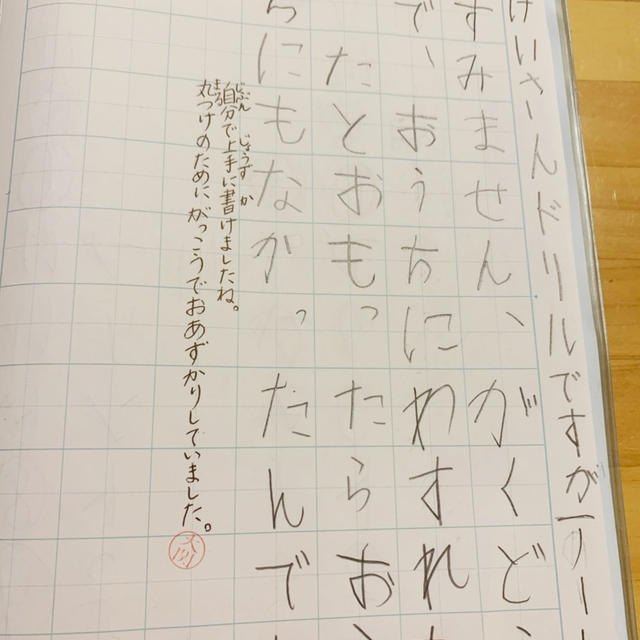 けいさんドリルですがー
すみません、がくど
で、おうちにわすれ
たとおもったらお
ちにもなかったんで
自分で上手に書けましたね。
じぶん じょうず か
丸つけのために、がっこうでおあずかりしていました。
まる